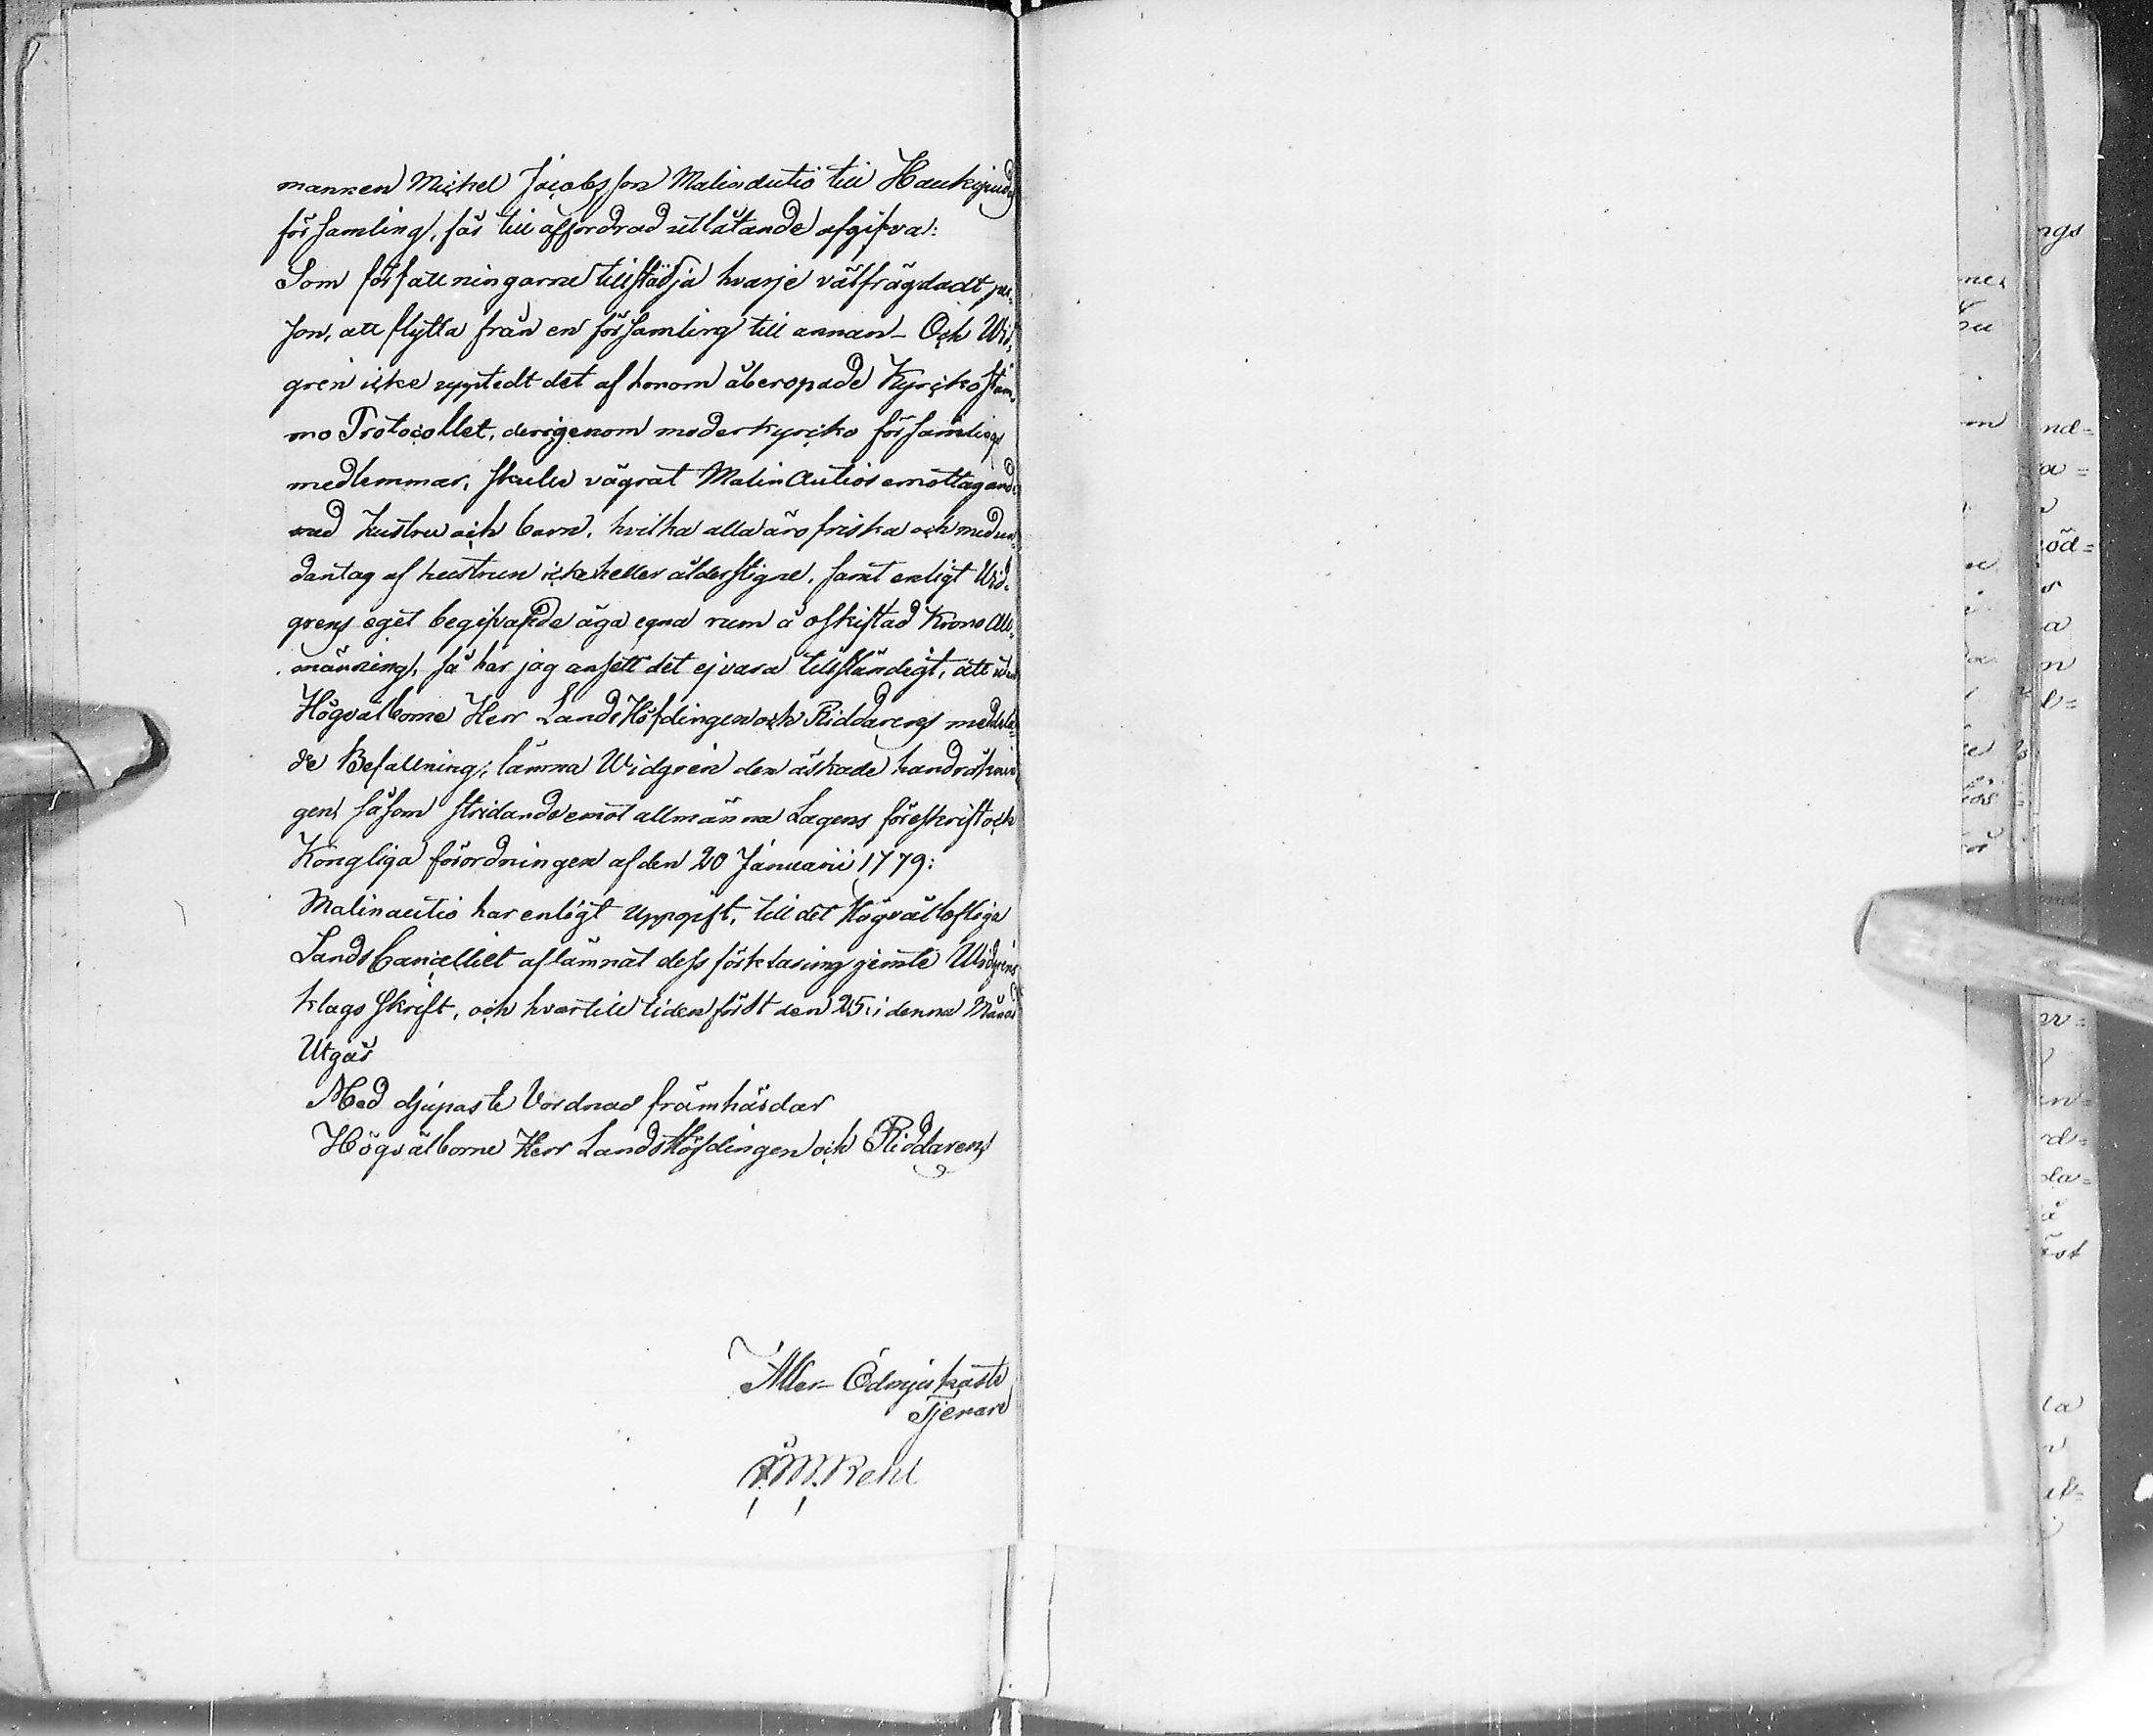 mannen Michel Jacobsson Malinautio till Haukipudas
församling, får till affordrad utlåtande afgifva:
Som författningarne tillstädja hvarje välfrägdadt per-
son, att flytta från en församling till annan - Och Wid-
gren icke upptedt det af honom åberopade Kyrcko stäm-
mo Protocollet, derigenom moderkyrcko församlings
medlemmar, skulle vägrat Malinautios emottagande
med hustru och barn, hvilka alla äro friska och med un-
dantag af hustrun icke heller ålderstigne, samt enligt Wid-
grens eget begifvande äga egna rum å oskiftad Krono All-
männing, så har jag ansett det ej vara tillständigt, att utan
Högvälborne Herr LandsHöfdingen och Riddarens meddela-
de Befallning, lämna Widgren den äskade handräknin-
gen såsom stridande emot allmänna Lagens föreskrift och
Kongliga förordningen af den 20 Januarii 1779:
Malinautio har enligt Uppgift, till det Högvälloflige
LandsCancelliet aflämnat dess förklaring jemte Widgrens
klago skrift, och hvartill tiden först den 25 i denna Månad
Utgår
Med djupaste Vördnad framhärdar
Högvälborne Herr LandsHöfdingen och Riddarens
Aller-Ödmjukaste
Tjenare
M. Kehl
ngs
nd=
a=
öd=
a
n
rds=
la=